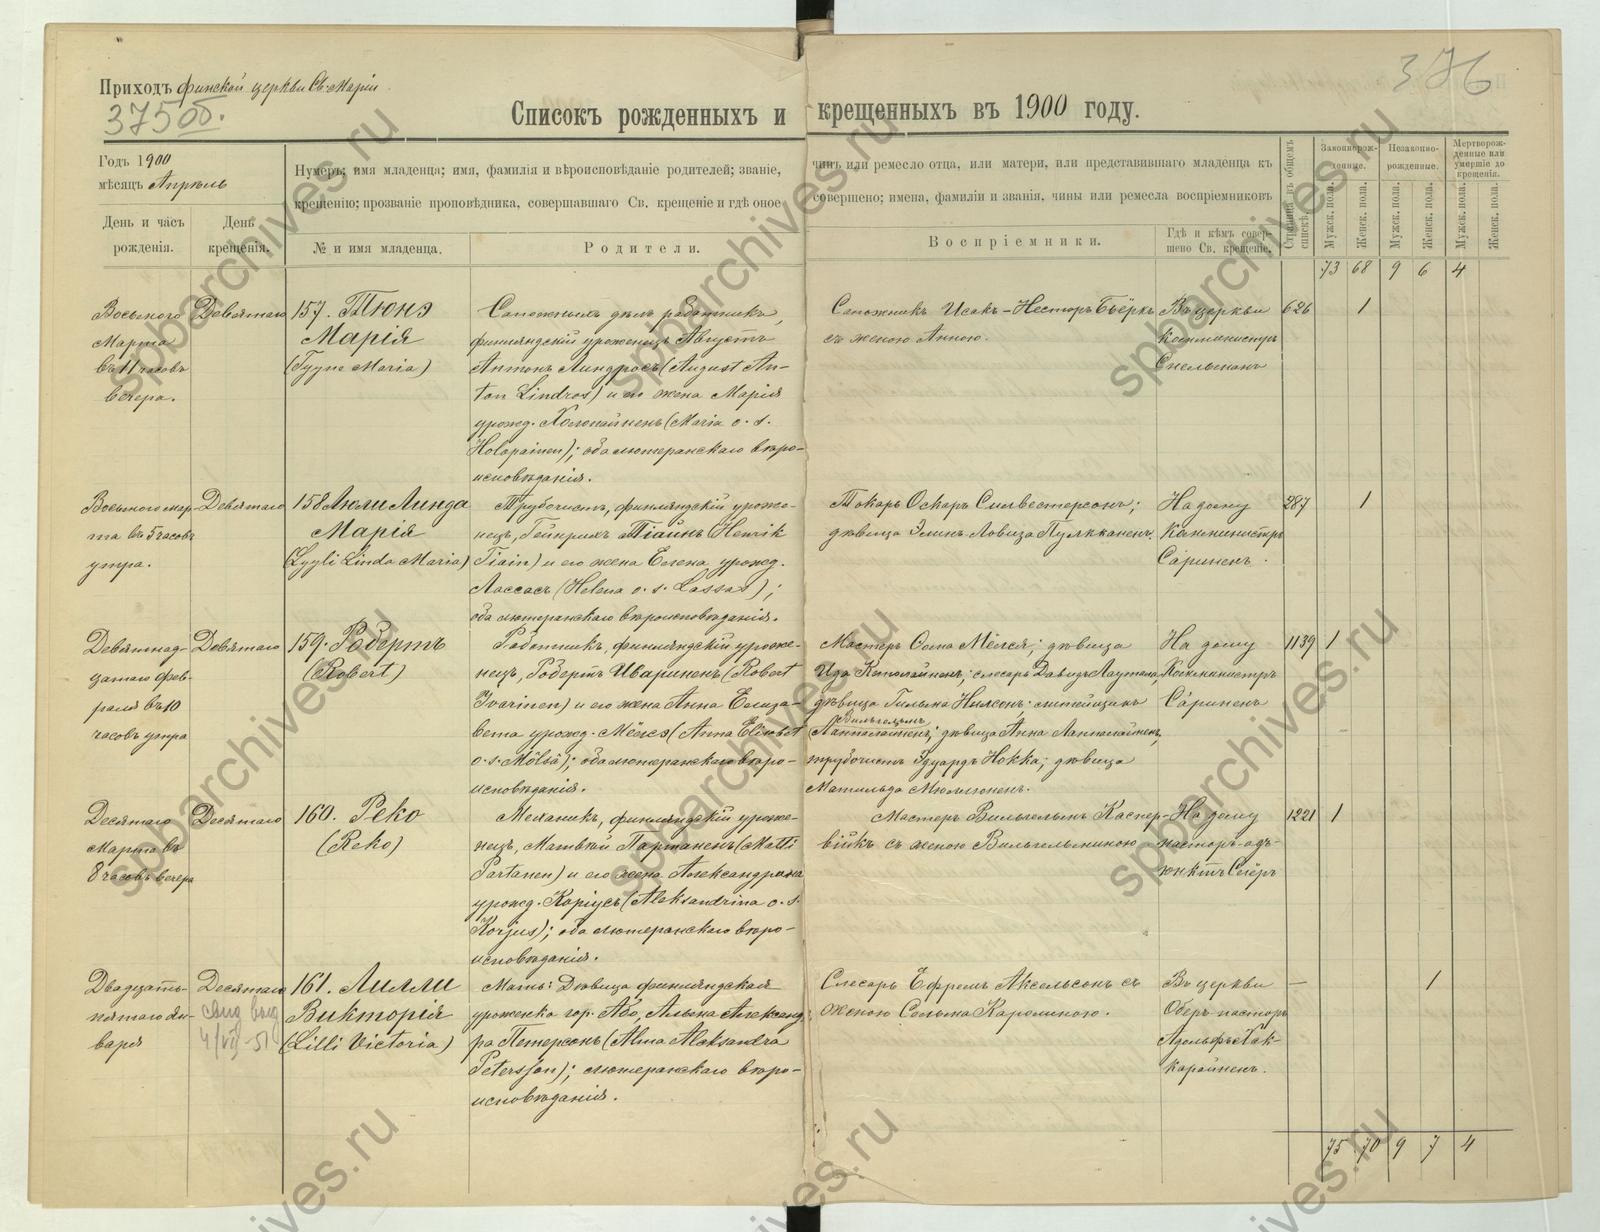 Приходъ финской церкви Св. Маріи
375об.
376
Списокъ рожденныхъ и крещенныхъ въ 1900 году.
Годъ 1900
мѣсяцъ Апрѣль
День и часъ рожденія.
День крещенія.
Нумеръ; имя младенца; имя, фамилія и вѣроисповѣданіе родителей; званіе, чинъ или ремесло отца, или матери, или представившаго младенца къ
крещенію; прозваніе проповѣдника, совершавшаго Св. крещеніе и гдѣ оное совершено; имена, фамиліи и званія, чины или ремесла воспріемниковъ
№ и имя младенца.
Родители.
Воспріемники.
Гдѣ и кѣмъ совершено Св. крещеніе.
Страница въ общемъ спискѣ.
Законнорожденные.
Незаконнорожденные.
Мертворожденные или умершіе до крещенія.
Мужск. пола.
Женск. пола.
Мужск. пола.
Женск. пола.
Мужск. пола.
Женск. пола.
73 68 9 6 4
Восьмого
Марта
въ 11 часовъ
вечера.
Девятаго
157. Тюнэ
Марія
(Tyyne Maria)
Сапожныхъ дѣлъ работникъ,
финляндскій уроженецъ Августъ
Антонъ Линдросъ (August An-
ton Lindros) и его жена Марія
урожд. Холопайненъ (Maria o. s.
Holopainen); оба лютеранскаго вѣро-
исповѣданія.
Сапожникъ Исакъ-Несторъ Бьёркъ
съ женою Анною.
Въ церкви
Капминистръ
Снельманъ
626
1
Восьмого мар-
та въ 5 часовъ
утра.
Девятаго
158 Люли Линда
Марія
(Lyyli Linda Maria)
Трубочистъ, финляндскій уроже-
нецъ, Гейнрихъ Тіайнъ (Henrik
Tiain) и его жена Елена урожд.
Лассасъ (Helena o. s. Lassas);
оба лютеранскаго вѣроисповѣданія.
Токарь Оскаръ Сильвестерсонъ;
дѣвица Элинъ Ловиза Пулкканенъ.
На дому
Капминистръ
Сáриненъ.
287
1
Девятнад-
цатаго фев-
раля въ 10
часовъ утра
Девятаго
159. Робертъ
(Robert)
Работникъ, финляндскій уроже-
нецъ, Робертъ Ивариненъ (Robert
Ivarinen) и его жена Анна Елиза-
вета урожд. Мёлсэ (Anna Elisabet
o. s. Mölsä); оба лютеранскаго вѣро-
исповѣданія.
Мастеръ Осма Мёлся; дѣвица
Ида слесарь Давидъ Лаутала,
дѣвица Гильма Нилсонъ; литейщикъ
Вильгельмъ
Лаппалайненъ; дѣвица Анна Лаппалайненъ,
трубочистъ Эдуардъ Нокка; дѣвица
Матильда
На дому
Капминистръ
Сáриненъ
1139
1
Десятаго
Марта въ
8 часовъ вечера
Десятаго
160. Реко
(Reko)
Механикъ, финляндскій уроже-
нецъ, Матвѣй Партаненъ (Matti
Partanen) и его жена Александрина
урожд. Коріусъ (Aleksandrina o. s.
Korjus); оба лютеранскаго вѣро-
исповѣданія.
Мастеръ Вильгельмъ Каспер-
війкъ съ женою Вильгельминою
На дому
пасторъ-адъ-
юнктъ
1221
1
Двадцать-
пятаго ян-
варя
Десятаго
161. Лилли
Викторія
(Lilli Victoria)
Мать: Дѣвица финляндская
уроженка гор. Або, Альма Александ-
ра Петерсонъ (Alma Aleksandra
Petersson); лютеранскаго вѣро-
исповѣданія.
Слесарь Ефремъ Аксельсонъ съ
женою Сельма Каролиною.
Въ церкви
Оберъ-пасторъ
Адольфъ Хак-
карайненъ.
—
1
75 70 9 7 4
spbarchives.ru